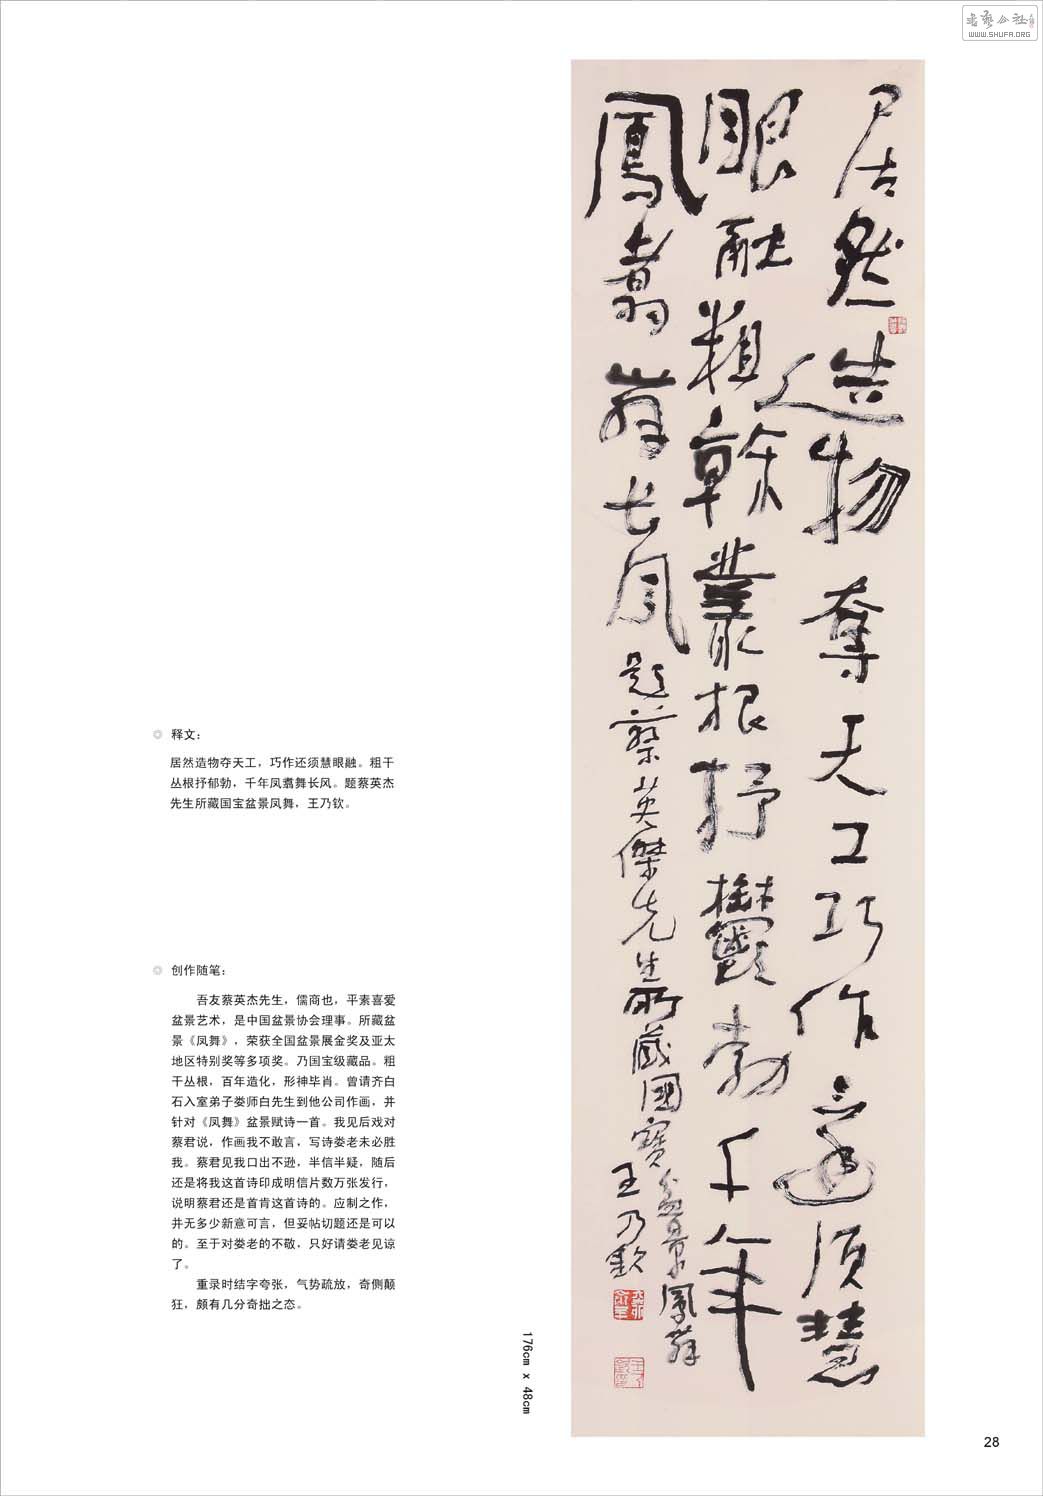 书艺公社
WWW.SHUFA.ORG
居然造物奪天工巧作還須慧
眼融粗幹叢根抒鬱勃千年
鳳翥舞长风
題蔡英傑先生所藏國寶盆景鳳舞
王乃欽
释文：
居然造物夺天工，巧作还须慧眼融。粗干
丛根抒郁勃，千年凤翥舞长风。题蔡英杰
先生所藏国宝盆景凤舞，王乃钦。
创作随笔：
吾友蔡英杰先生，儒商也，平素喜爱
盆景艺术，是中国盆景协会理事。所藏盆
景《凤舞》，荣获全国盆景展金奖及亚太
地区特别奖等多项奖。乃国宝级藏品。粗
干丛根，百年造化，形神毕肖。曾请齐白
石入室弟子娄师白先生到他公司作画，并
针对《凤舞》盆景赋诗一首。我见后戏对
蔡君说，作画我不敢言，写诗娄老未必胜
我。蔡君见我口出不逊，半信半疑，随后
还是将我这首诗印成明信片数万张发行，
说明蔡君还是首肯这首诗的。应制之作，
并无多少新意可言，但妥帖切题还是可以
的。至于对娄老的不敬，只好请娄老见谅
了。
重录时结字夸张，气势疏放，奇侧颠
狂，颇有几分奇拙之态。
176cm x 48cm
28